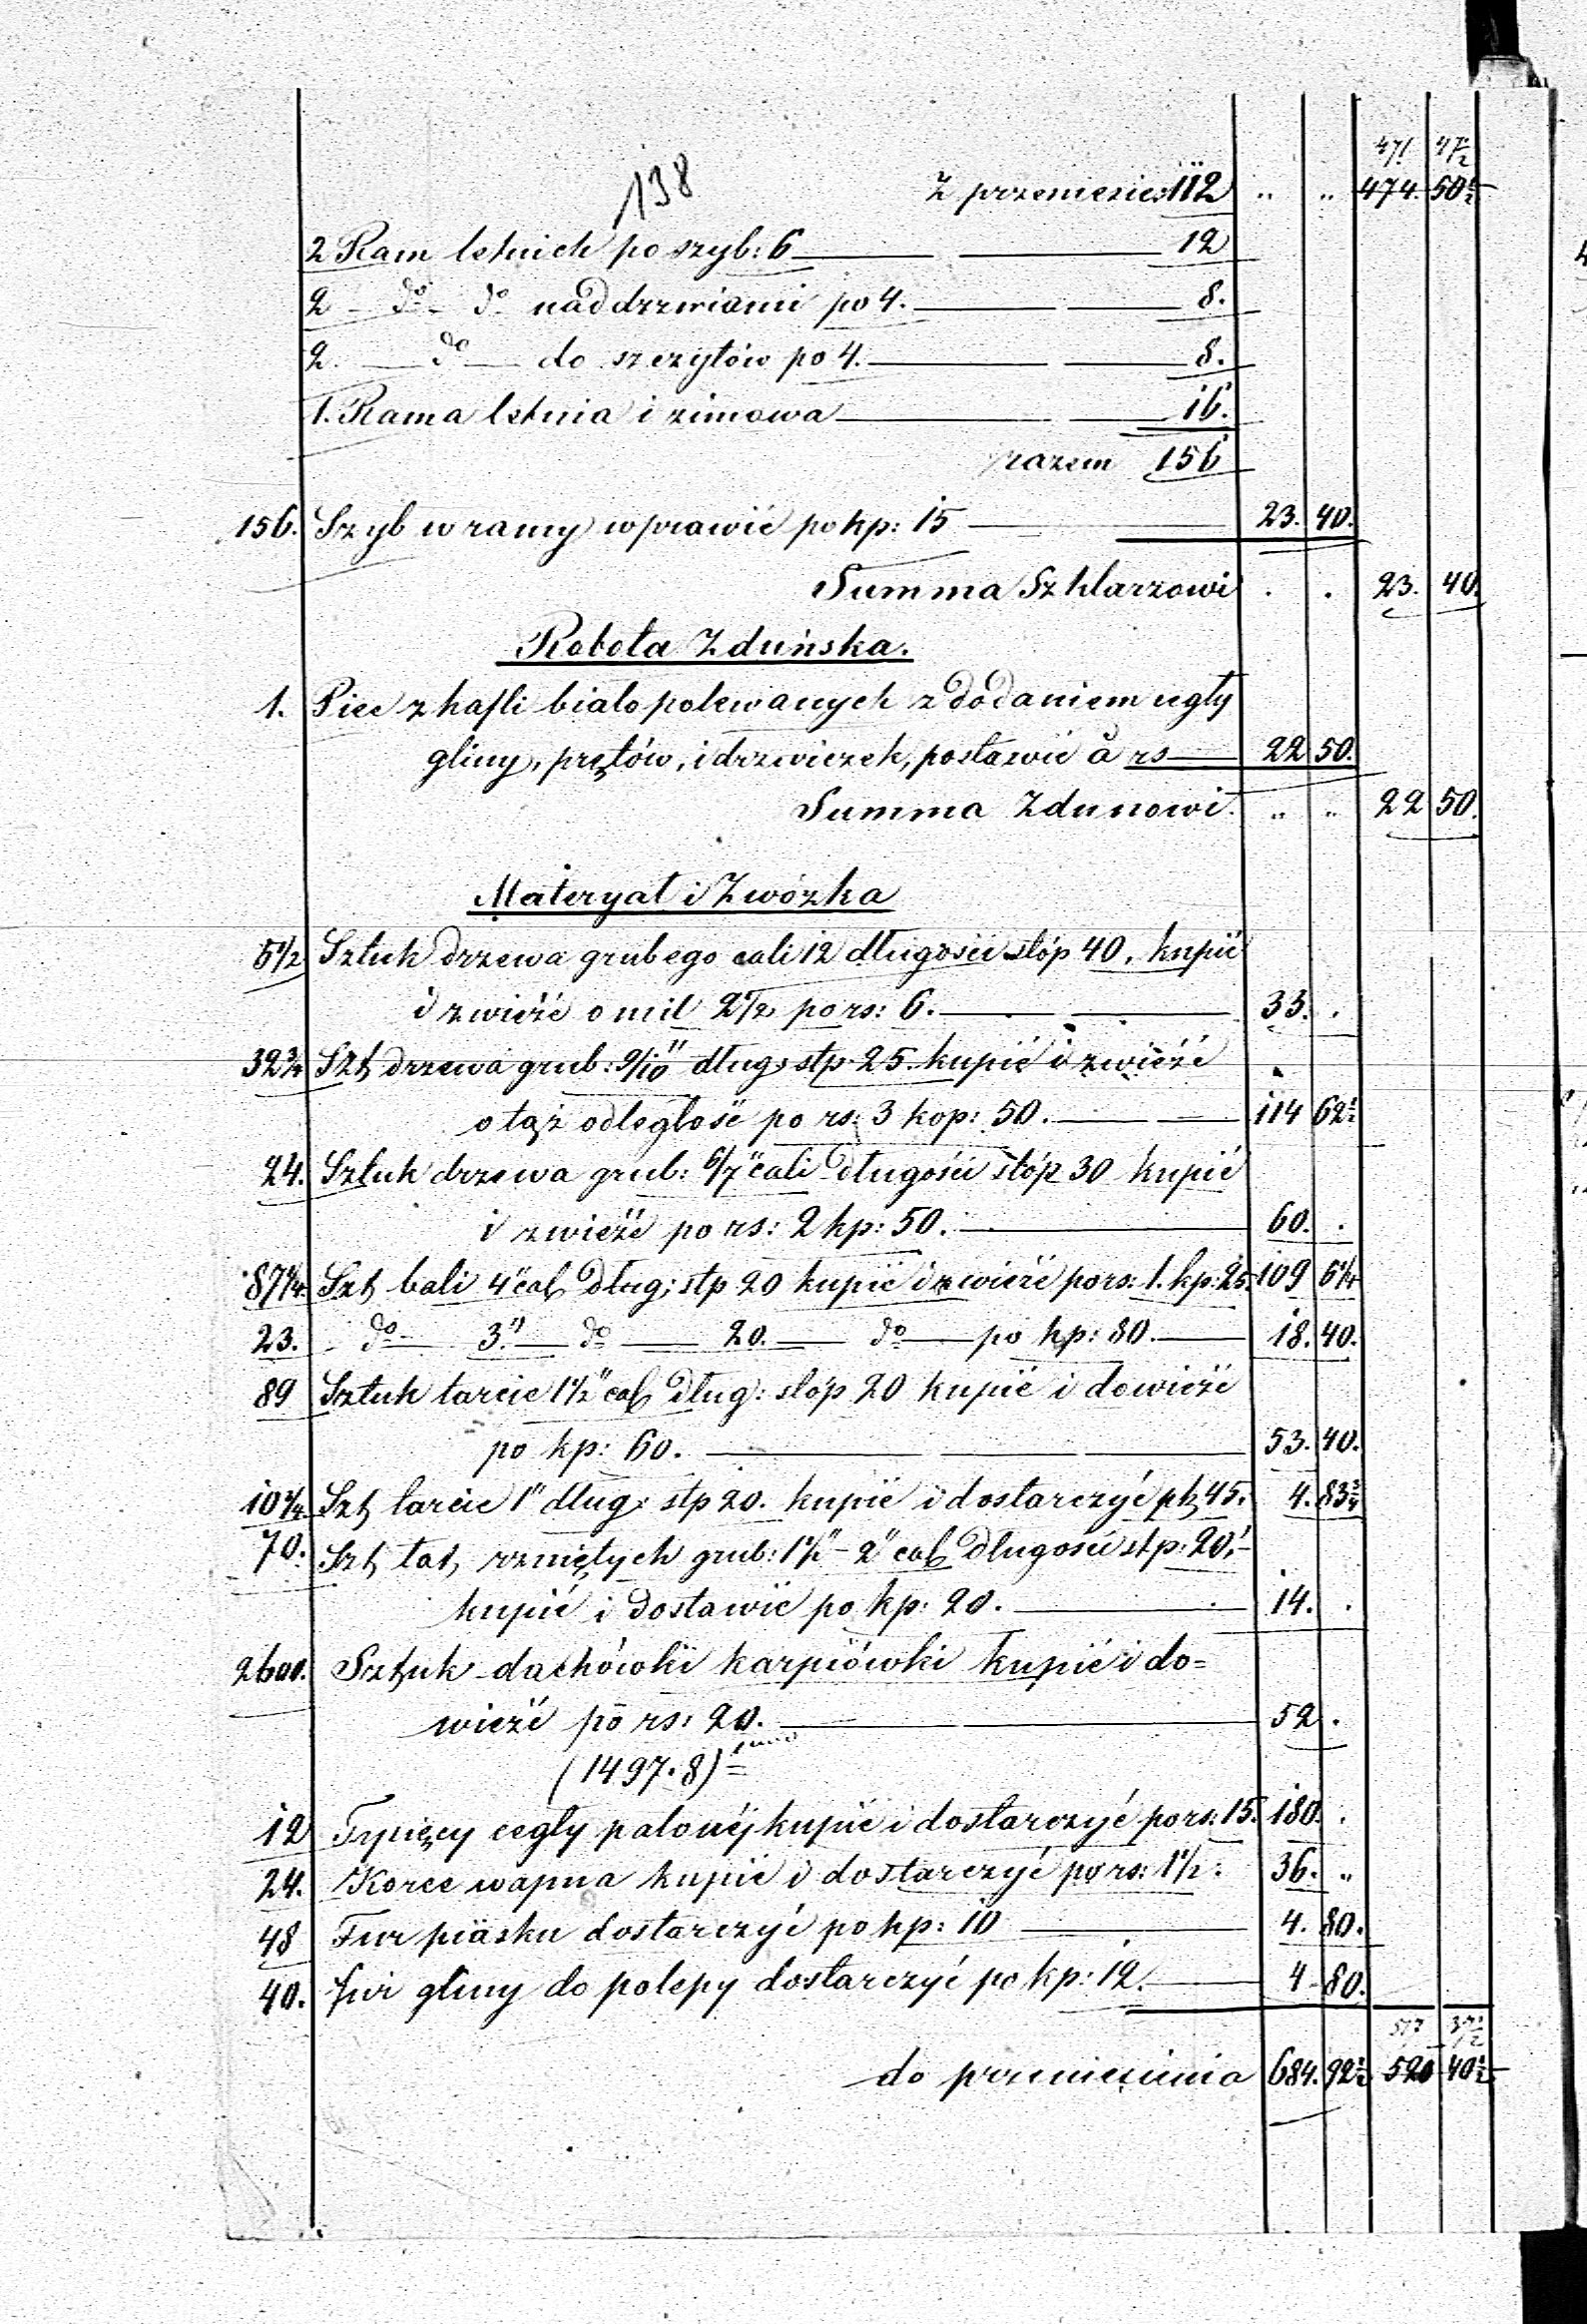 471 47½
138
Z przeniesie: 112 .. .. 474. 50½
2 Ram letnich po szyb: 6 12
2 - do - do nad drzwiami po 4. 8.
2. do do szczytów po 4. 8.
1. Rama letnia i zimowa 16.
razem 156
156. Szyb w ramy wprawić po kp: 15 23. 40.
Summa Szklarzowi . . 23. 40.
Robota Zduńska.
1. Piec z kafli biało polewanych z dodaniem cegły
gliny, prętów, i drzwiczek, postawić à rs 22 50.
Summa Zdunowi. .. .. 22 50.
Materyał i Zwózka
5½ Sztuk drzewa grubego cali 12 długości stóp 40. kupić
i zwieźć o mil 2½ po rs: 6. 33. .
32¾ Szt drzewa grub: 9/10" dług: stp. 25. kupić i zwieźć
o tąż odległość po rs: 3 kop: 50. 114 62½
24. Sztuk drzewa grub: 6/7" cali długości stóp 30 kupić
i zwieźć po rs: 2 kp: 50. 60. .
87¼. Szt bali 4" cal dług: stp 20 kupić i zwieźć po rs: 1. kp: 25. 109 6¼
23. do 3" do 20. do po kp: 80. 18. 40.
89 Sztuk tarcic 1½" cal dług: stóp 20 kupić i dowieźć
po kp: 60. 53. 40.
10¾ Szt tarcic 1" dług: stp 20. kupić i dostarczyć pk 45. 4. 83¾
70. Szt łat, rzniętych grub: 1½" - 2" cal długości stp: 20.
kupić i dostawić po kp: 20. 14. .
2600. Sztuk dachówki karpiówki kupić i do=
wieźć po rs: 20. 52 .
(1497.8)
12 Tysięcy cegły palonéj kupić i dostarczyć po rs: 15. 180. .
24. Korce wapna kupić i dostarczyć po rs: 1½. 36. ..
48 Fur piasku dostarczyć po kp: 10 4. 80.
40. fur gliny do polepy dostarczyć po kp: 12. 4 - 80.
517 37½
do przeniesienia 684. 92½ 520 40½